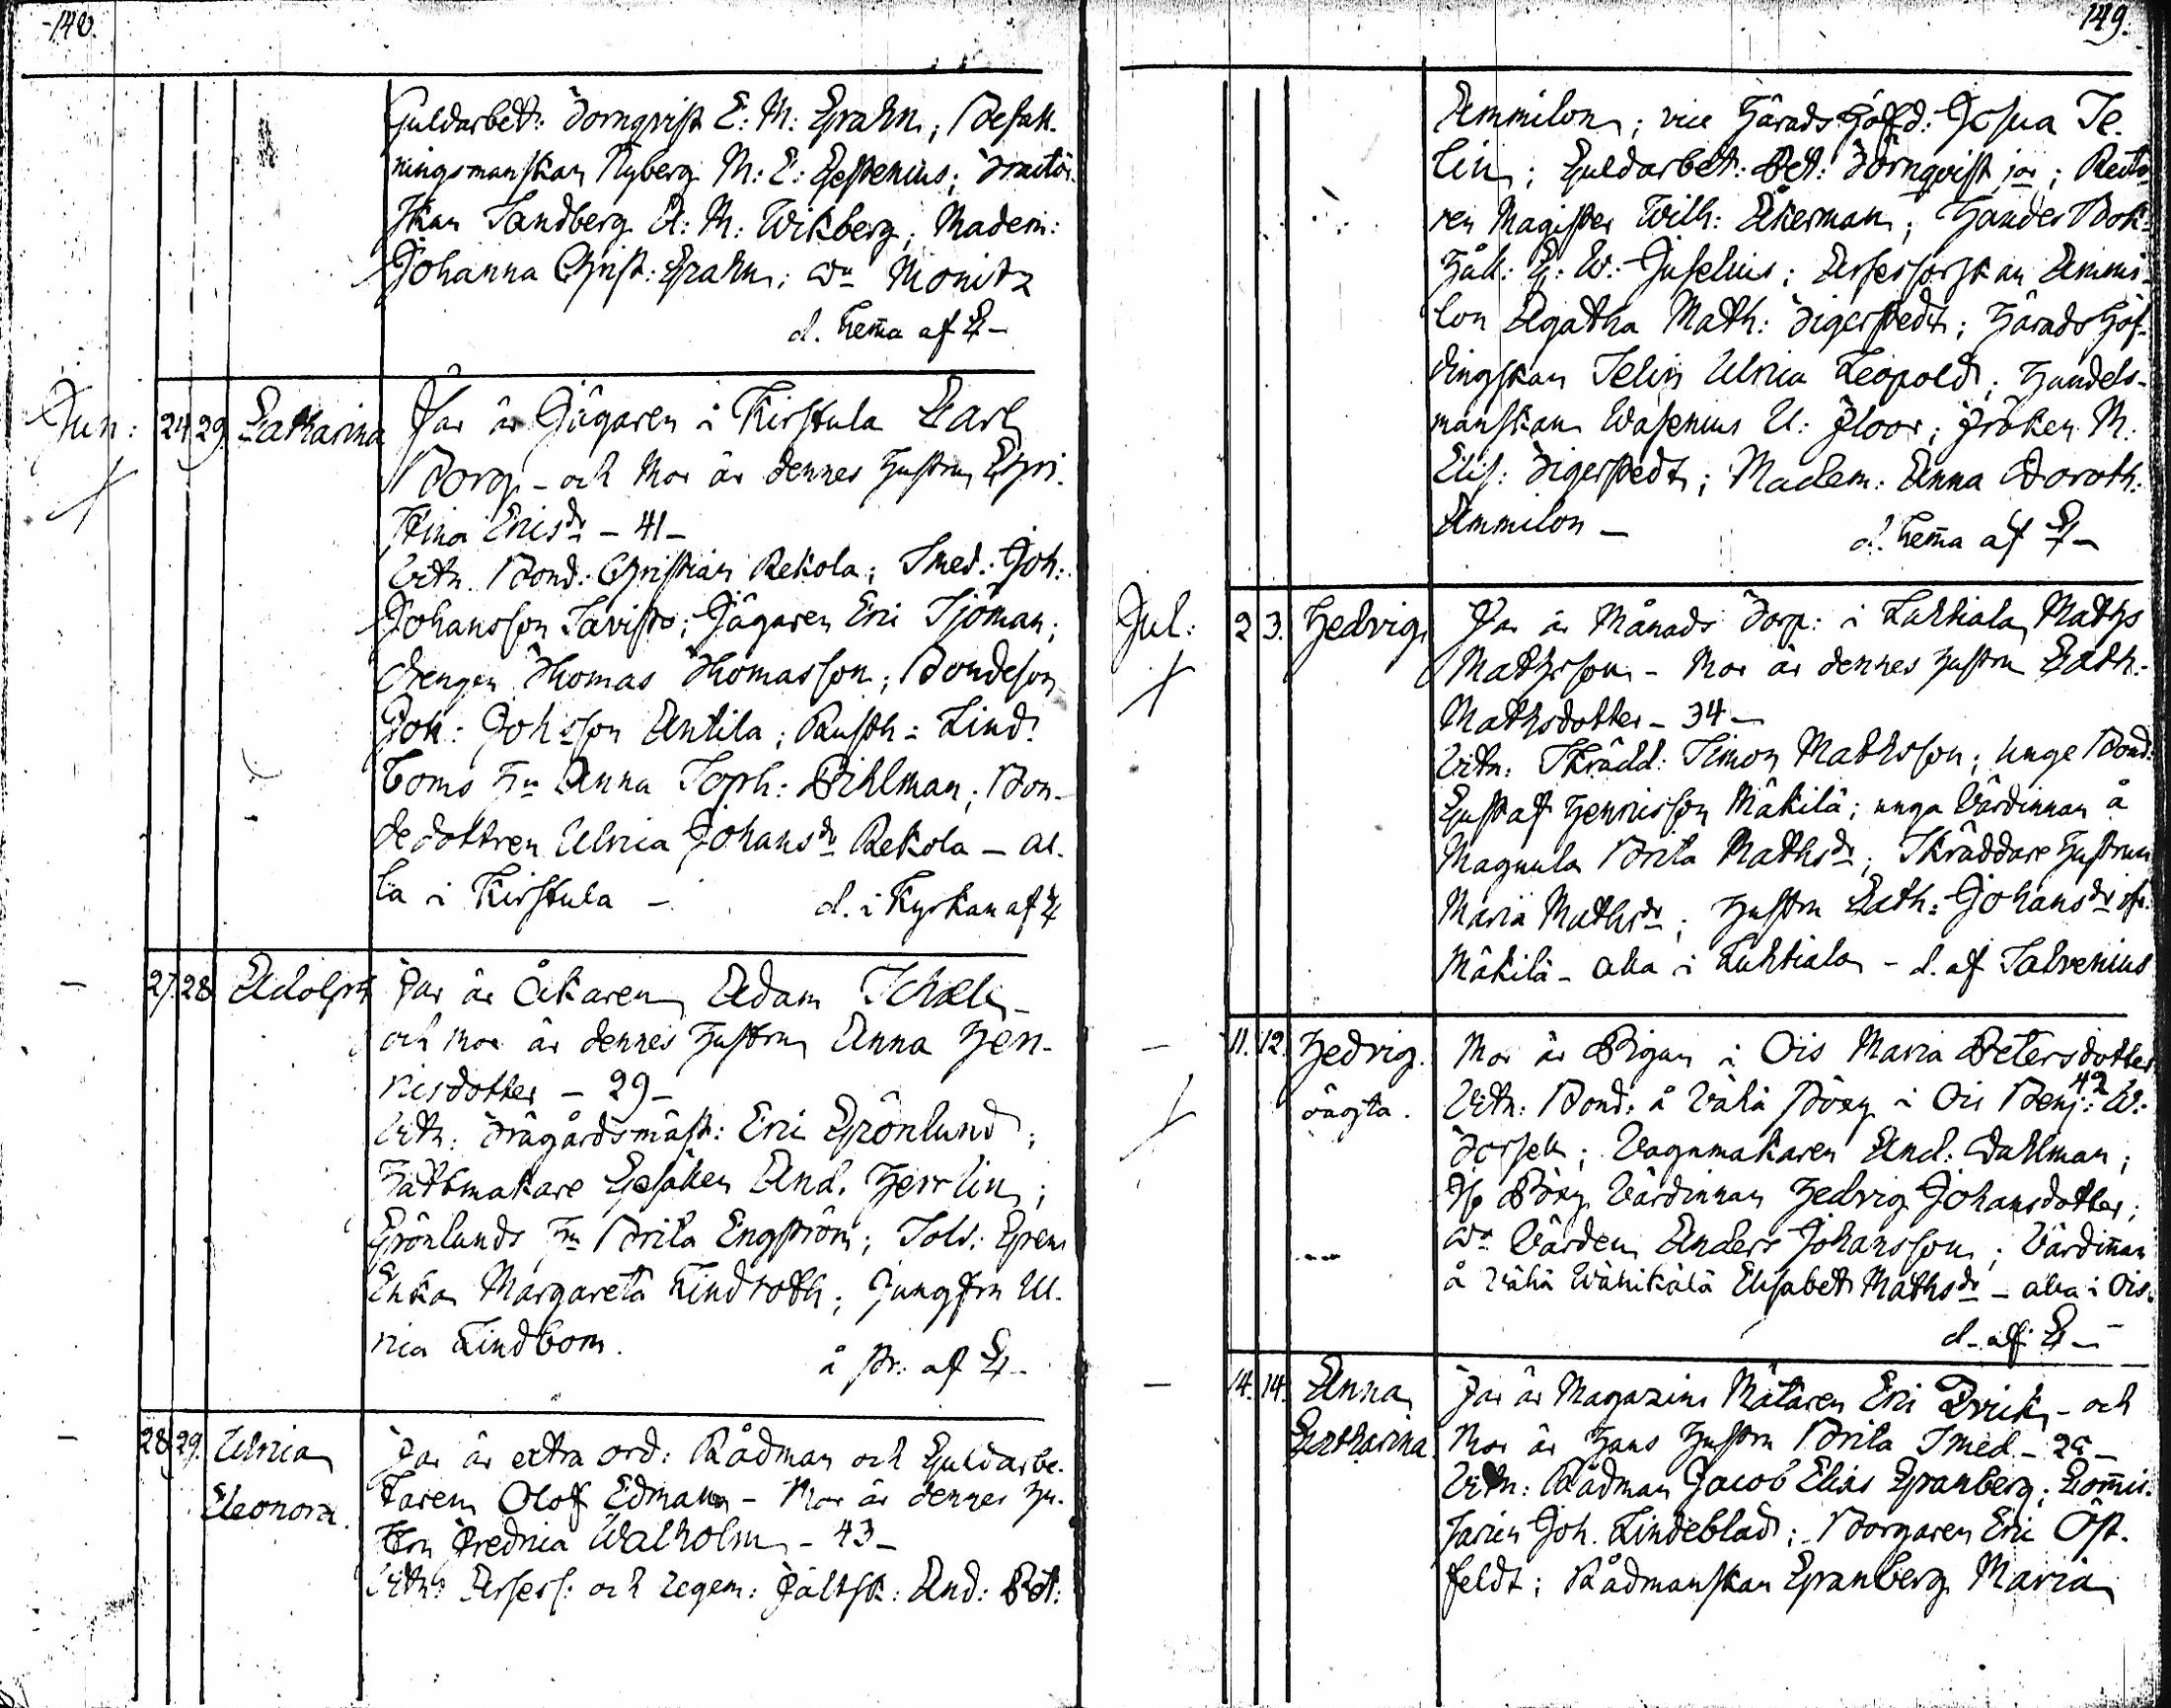 148.
Guldarbet: Törnqvist C: M: Grahn; Befall-
ningsmanskan Nyberg M: C: Gestenius; Tractör-
skan Sandberg A: M: Wikberg; Madem:
Johanna Christ: Grahn; Monitz
d. hem̄a af
Jun: 24 29. Catharina Far är Jägaren i Kirstula Carl
Borg - och Mor är dennes hustru Chri-
stina Ericsdr - 41 -
Vitn. Bond: Christian Rekola; Smed: Joh:
Johansson Savisto; Jägaren Eric Sjöman;
drengen Thomas Thomasson; Bondeson
Joh: Johsson Antila; Rusth: Lind-
boms Hu Anna Soph: Pihlman; Bon-
dedottren Ulrica Johansdr Rekola - al-
la i Kirstula - d. i Kyrkan af
- 27. 28 Adolph Far är Åkaren Adam
och Mor är dennes hustru Anna Hen-
ricsdotter - 29 -
Vitn: Trägårdsmäst: Eric Grönlund;
Hattmakare Gesällen And. Herrlin;
Grönlunds Hu Brita Engström; Sold: Grens
Enka Margareta Lindroth; Jungfru Ul-
rica Lindbom. å pr: af
- 28 29. Ulrica Far är extra ord: Rådman och Guldarbe-
Eleonora. taren Olof Edman - Mor är dennes hu-
stru Fredrica Walholm - 43 -
Vitn: Assess: och regem: Fältsk: And: Pet:
149.
Ammilon; vice Häradshöfd: Josua Se-
lin; Guldarbet: Pet: Törnqvist jor; Recto-
ren Magister Wilh: Åkerman; Handes Bok-
håll: G: W: Juselius; Assessorskan Ammi-
lon Agatha Math: Tigerstedt; Häradshöf-
dingskan Selin Ulrica Leopold; Handels-
manskan Wasenius U: Floor; Fröken M:
Elis: Tigerstedt; Madem: Anna Doroth:
Ammilon - d. hem̄a af
Jul: 2 3. Hedvig Far är Månads Torp: i Luhtiala Maths
Mathsson - Mor är dennes hustru Cath-
Mathsdotter - 34 -
Vitn: Skrädd: Simon Mathsson; unge Bond:
Gustaf Henricsson Mäkilä; unga Värdinnan å
Magnula Brita Mathsdr; Skräddare hustrun
Maria Mathsdr; hustru Cath: Johansdr
Mäkilä - alla i Luhtiala - d. af Salvenius
- 11. 12. Hedvig. Mor är Pigan i Ois Maria Petersdotter
42
oägta. Vitn: Bond: å Vähä Pöxy i Ois Benj: W:
Forsell; Vagnmakaren And: Dahlman;
Pöxy Värdinnan Hedvig Johansdotter;
Värden Anders Johansson; Värdin̄an
å Vähä Wähikälä Elisabet Mathsdr - alla i Ois.
d. af
- 14. 14. Anna Far är Magazins Mätaren Eric - och
Catharina. Mor är hans hustru Brita Smed -
Vitn: Rådman Jacob Elias Granberg; Com̄is-
sarien Joh. Lindeblad; Borgaren Eric Öst-
feldt; Rådmanskan Granberg Maria